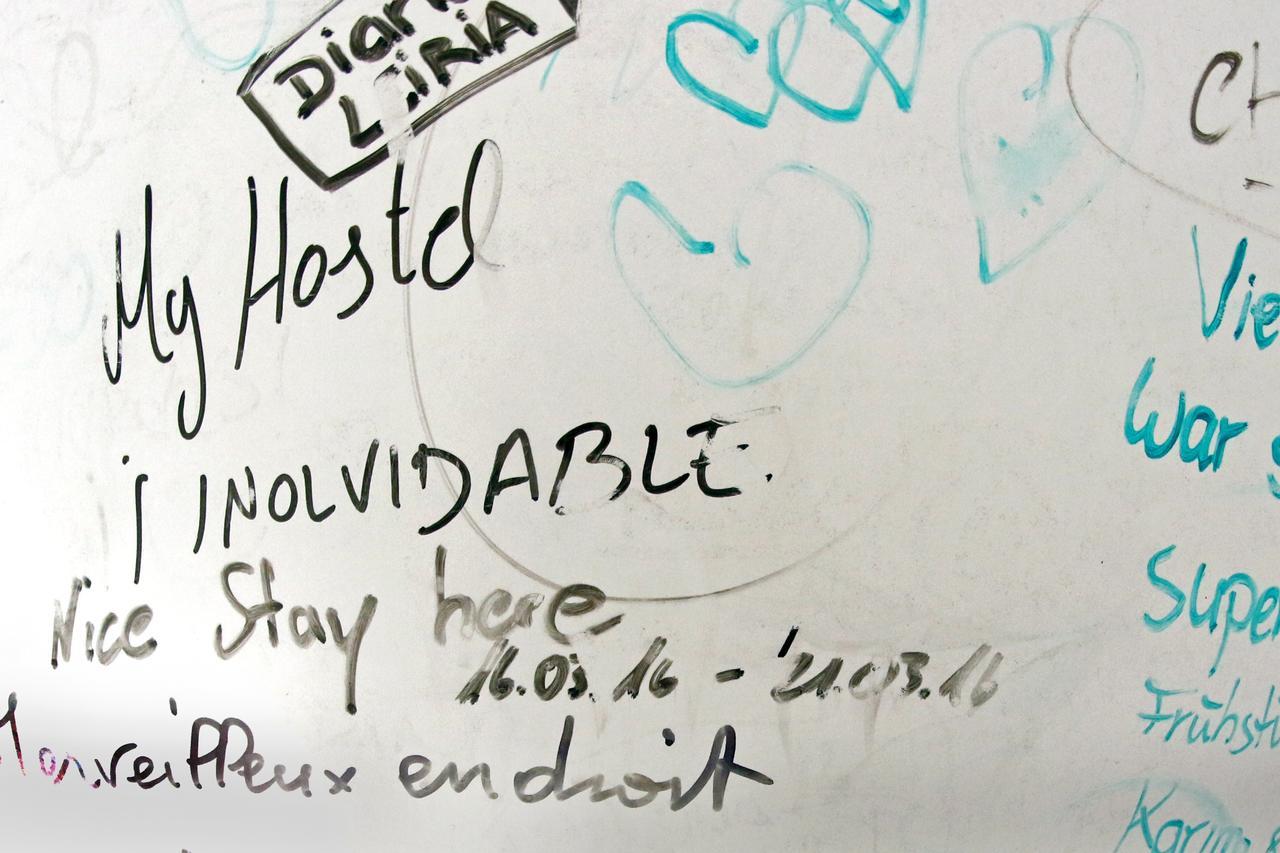 Diario
LEIRIA
My Hostel
¡ INOLVIDABLE.
Nice Stay here
16.03.16 - 21.03.16
Merveilleux endroit
CH
Vie
War g
Super
Frühst
Karin